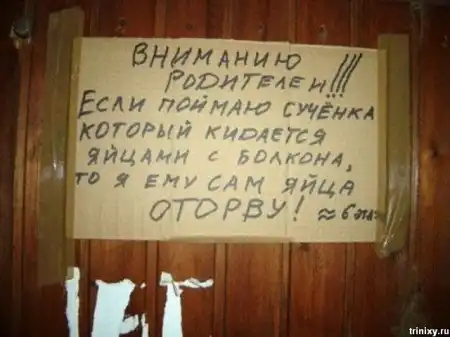 ВНИМАНИЮ
РОДИТЕЛЕЙ!!!
ЕСЛИ ПОЙМАЮ СУЧЁНКА
КОТОРЫЙ КИДАЕТСЯ
ЯЙЦАМИ С БОЛКОНА,
ТО Я ЕМУ САМ ЯЙЦА
ОТОРВУ! ≈ 6 этаж
trinixy.ru